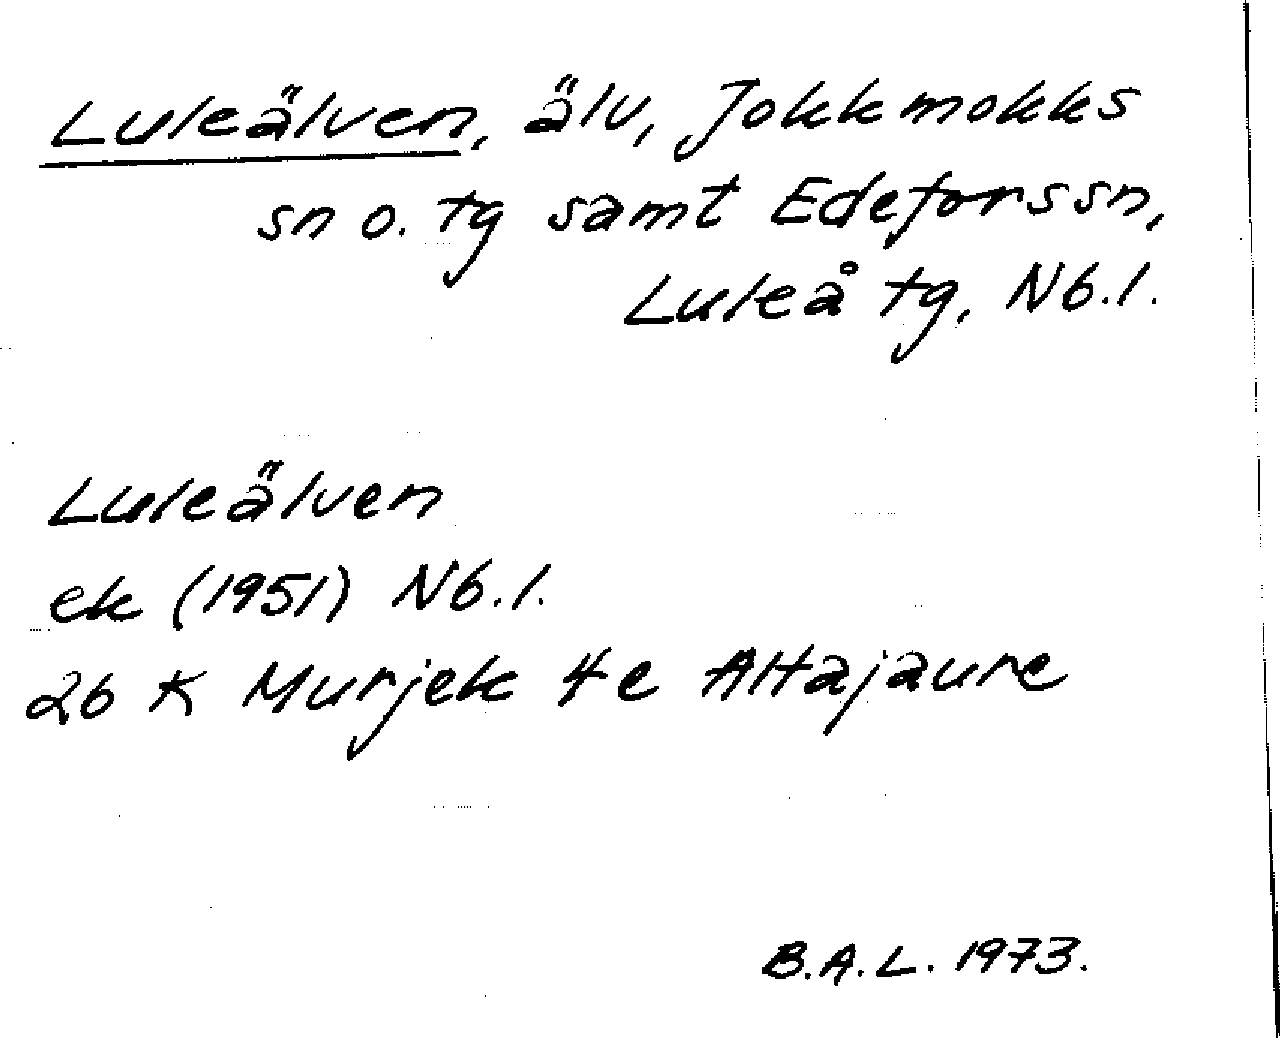 Luleälven, älv, Jokkmokks
sn o. tg samt Edefors sn,
Luleå tg, Nb.l.
Luleälven
ek (1951) Nb.l.
26 K Murjek 4e Altajaure
B.A.L. 1973.